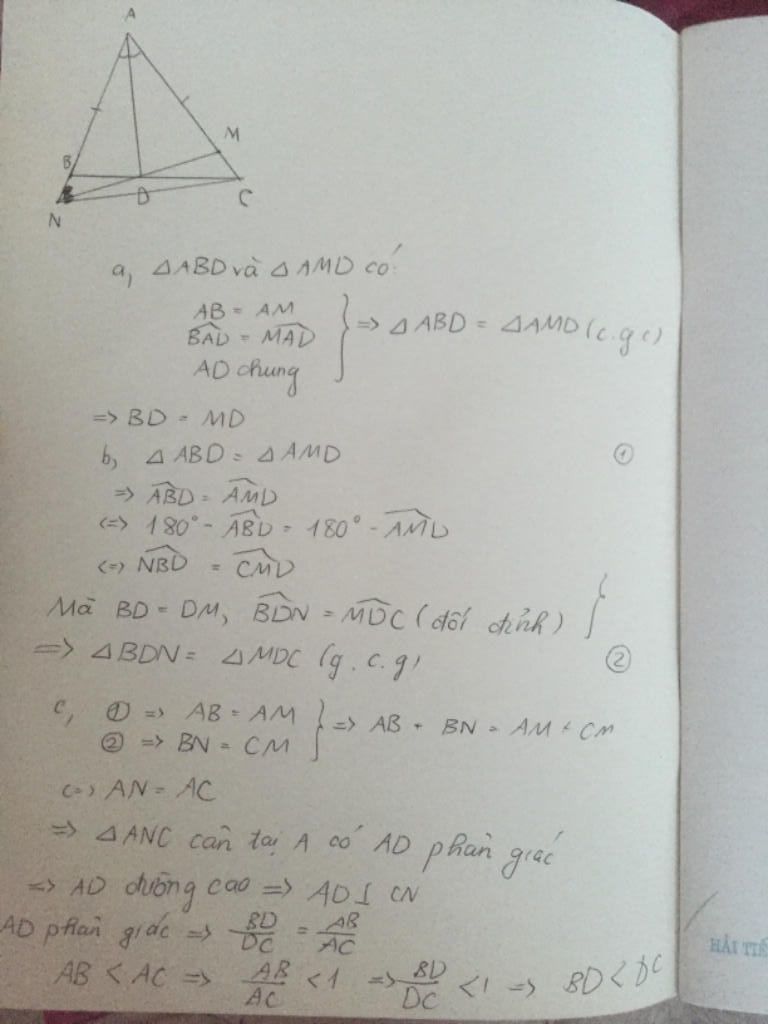 A
M
B
D
C
N
a, △ABD và △AMD có:
AB = AM
$\widehat{BAD}$ = $\widehat{MAD}$ } => △ABD = △AMD (c.g.c)
AD chung
=> BD = MD
b, △ABD = △AMD ①
=> $\widehat{ABD}$ = $\widehat{AMD}$
<=> 180° - $\widehat{ABD}$ = 180° - $\widehat{AMD}$
<=> $\widehat{NBD}$ = $\widehat{CMD}$
Mà BD = DM, $\widehat{BDN}$ = $\widehat{MDC}$ (đối đỉnh) }
=> △BDN = △MDC (g.c.g) ②
c, ① => AB = AM } => AB + BN = AM + CM
② => BN = CM
<=> AN = AC
=> △ANC cân tại A có AD phân giác
=> AD đường cao => AD ⊥ CN
AD phân giác => $\frac{BD}{DC}$ = $\frac{AB}{AC}$
AB < AC => $\frac{AB}{AC}$ < 1 => $\frac{BD}{DC}$ < 1 => BD < DC
HẢI TIẾ